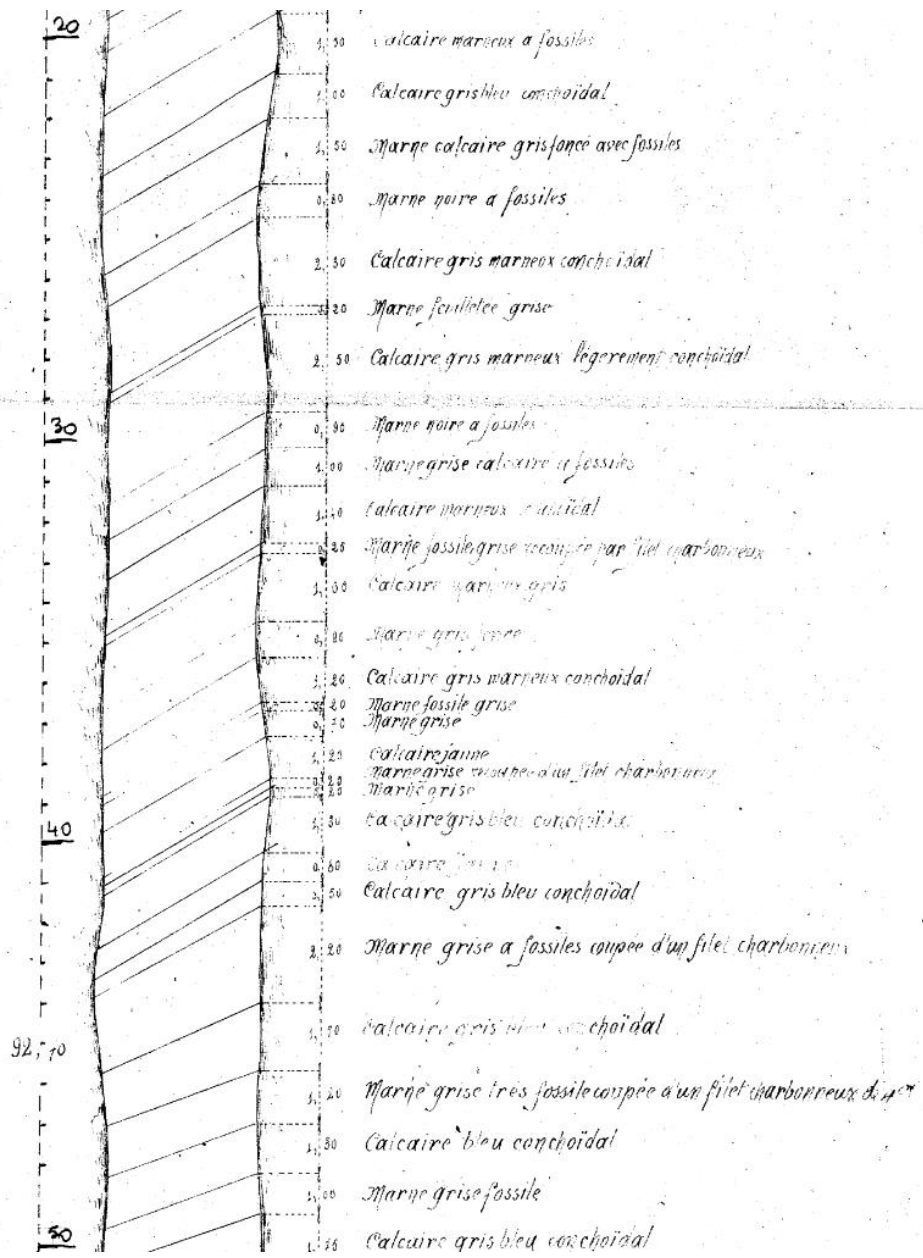 20
1,50 Calcaire marneux a fossiles
1,00 Calcaire gris bleu conchoïdal
1,50 Marne calcaire gris foncé avec fossiles
0,80 Marne noire a fossiles
2,30 Calcaire gris marneux conchoïdal
20 Marne feuilletée grise
2,50 Calcaire gris marneux légerement conchoïdal
30
0,90 Marne noire a fossiles
1,00 Marne grise calcaire a fossiles
Calcaire marneux
25 Marne fossile grise recoupée par filet charbonneux
Calcaire marneux gris
0,80 Marne gris foncé
1,20 Calcaire gris marneux conchoïdal
20 Marne fossile grise
Marne grise
1,20 Calcaire jaune
0,20 Marne grise recoupée d'un filet charbonneux
20 Marne grise
40
Calcaire gris bleu conchoïdal
0,60 Calcaire
50 Calcaire gris bleu conchoïdal
2,20 Marne grise a fossiles coupée d'un filet charbonneux
Calcaire gris bleu conchoïdal
92,70
1,20 Marne grise très fossile coupée d'un filet charbonneux de
1,30 Calcaire bleu conchoïdal
1,00 Marne grise fossile
50
Calcaire gris bleu conchoïdal